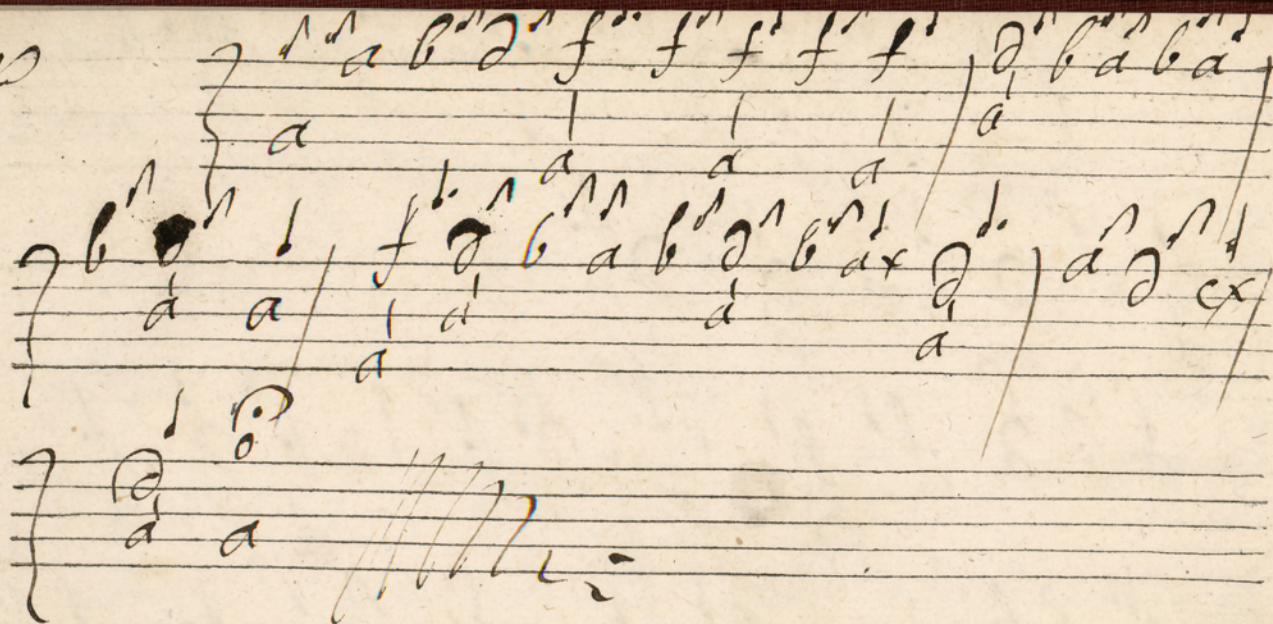 a b d f f f f f d b a b a
a a a a a
b d f d b a b d b a x d a d c x
a a a a a a
d
a a